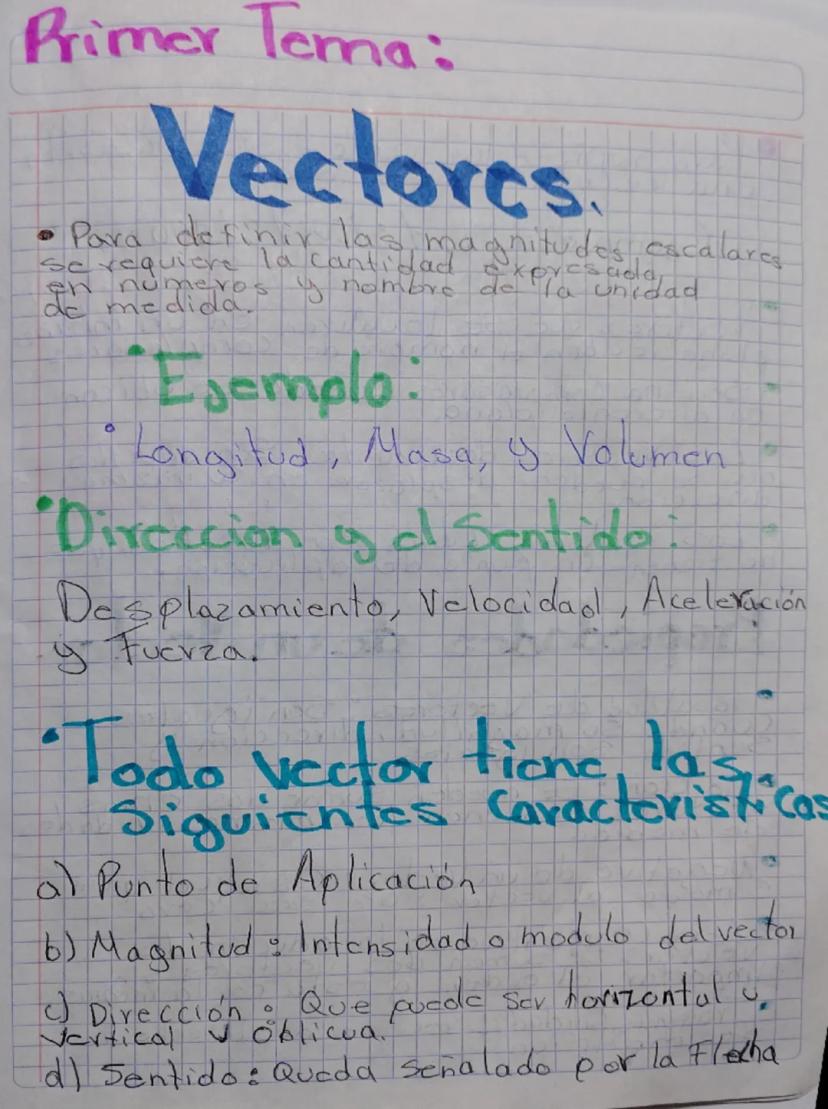 Primer Tema:
Vectores.
• Para definir las magnitudes escalares
se requiere la cantidad expresada
en numeros y nombre de la unidad
de medida.
• Ejemplo:
• Longitud, Masa, y Volumen
• Direccion y el Sentido:
Desplazamiento, Velocidad, Aceleración
y Fuerza.
• Todo vector tiene las
siguientes caracteristicas
a) Punto de Aplicación
b) Magnitud: Intensidad o modulo del vector
c) Dirección: Que puede ser horizontal u,
vertical y Oblicua.
d) Sentido: Queda señalado por la Flecha